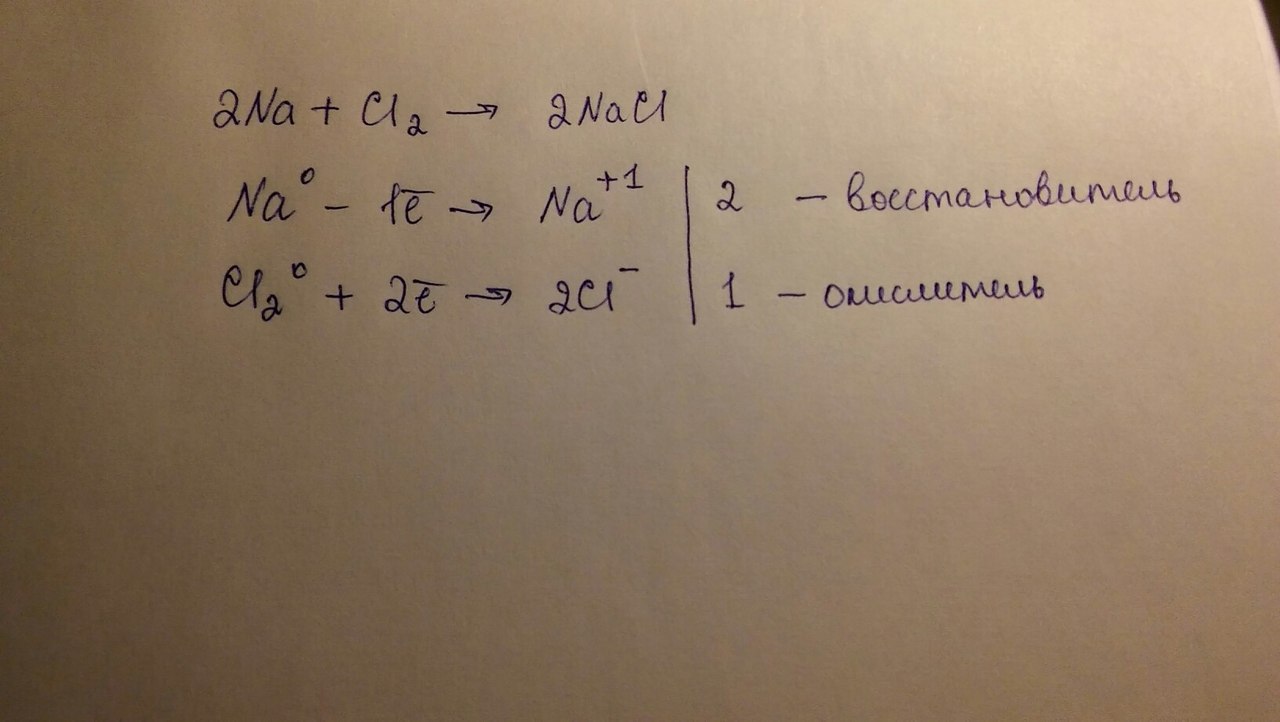 2Na + Cl₂ → 2NaCl
Na⁰ – 1e̅ → Na⁺¹ | 2 – восстановитель
Cl₂⁰ + 2e̅ → 2Cl⁻ | 1 – окислитель